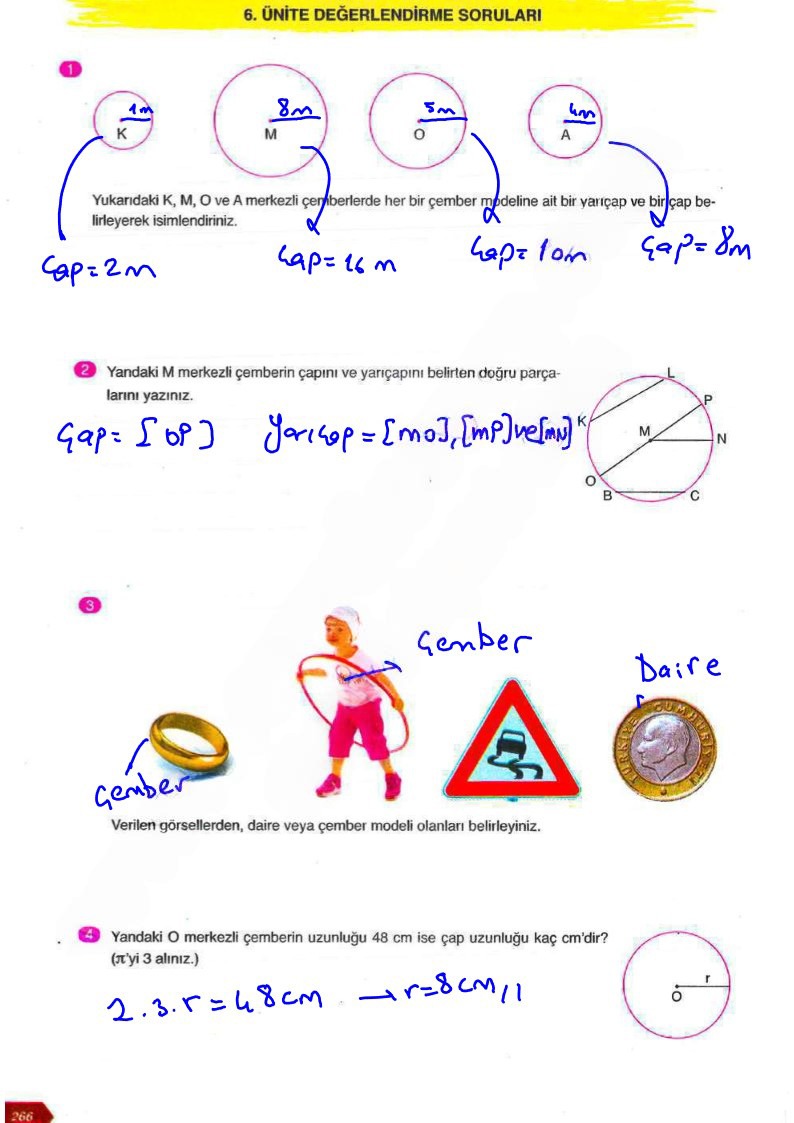 6. ÜNİTE DEĞERLENDİRME SORULARI
1
1m
8m
5m
4m
K
M
O
A
Yukarıdaki K, M, O ve A merkezli çemberlerde her bir çember modeline ait bir yarıçap ve bir çap be-
lirleyerek isimlendiriniz.
Çap=2m
Çap=16m
Çap=10m
Çap=8m
2 Yandaki M merkezli çemberin çapını ve yarıçapını belirten doğru parça-
larını yazınız.
Çap=[OP] Yarıçap=[MO],[MP]ve[MN]
L
P
K
M
N
O
B
C
3
Çember
Daire
TÜRKİYE CUMHURİYETİ
Çember
Verilen görsellerden, daire veya çember modeli olanları belirleyiniz.
4 Yandaki O merkezli çemberin uzunluğu 48 cm ise çap uzunluğu kaç cm'dir?
(π'yi 3 alınız.)
2.3.r=48cm →r=8cm//
r
O
266